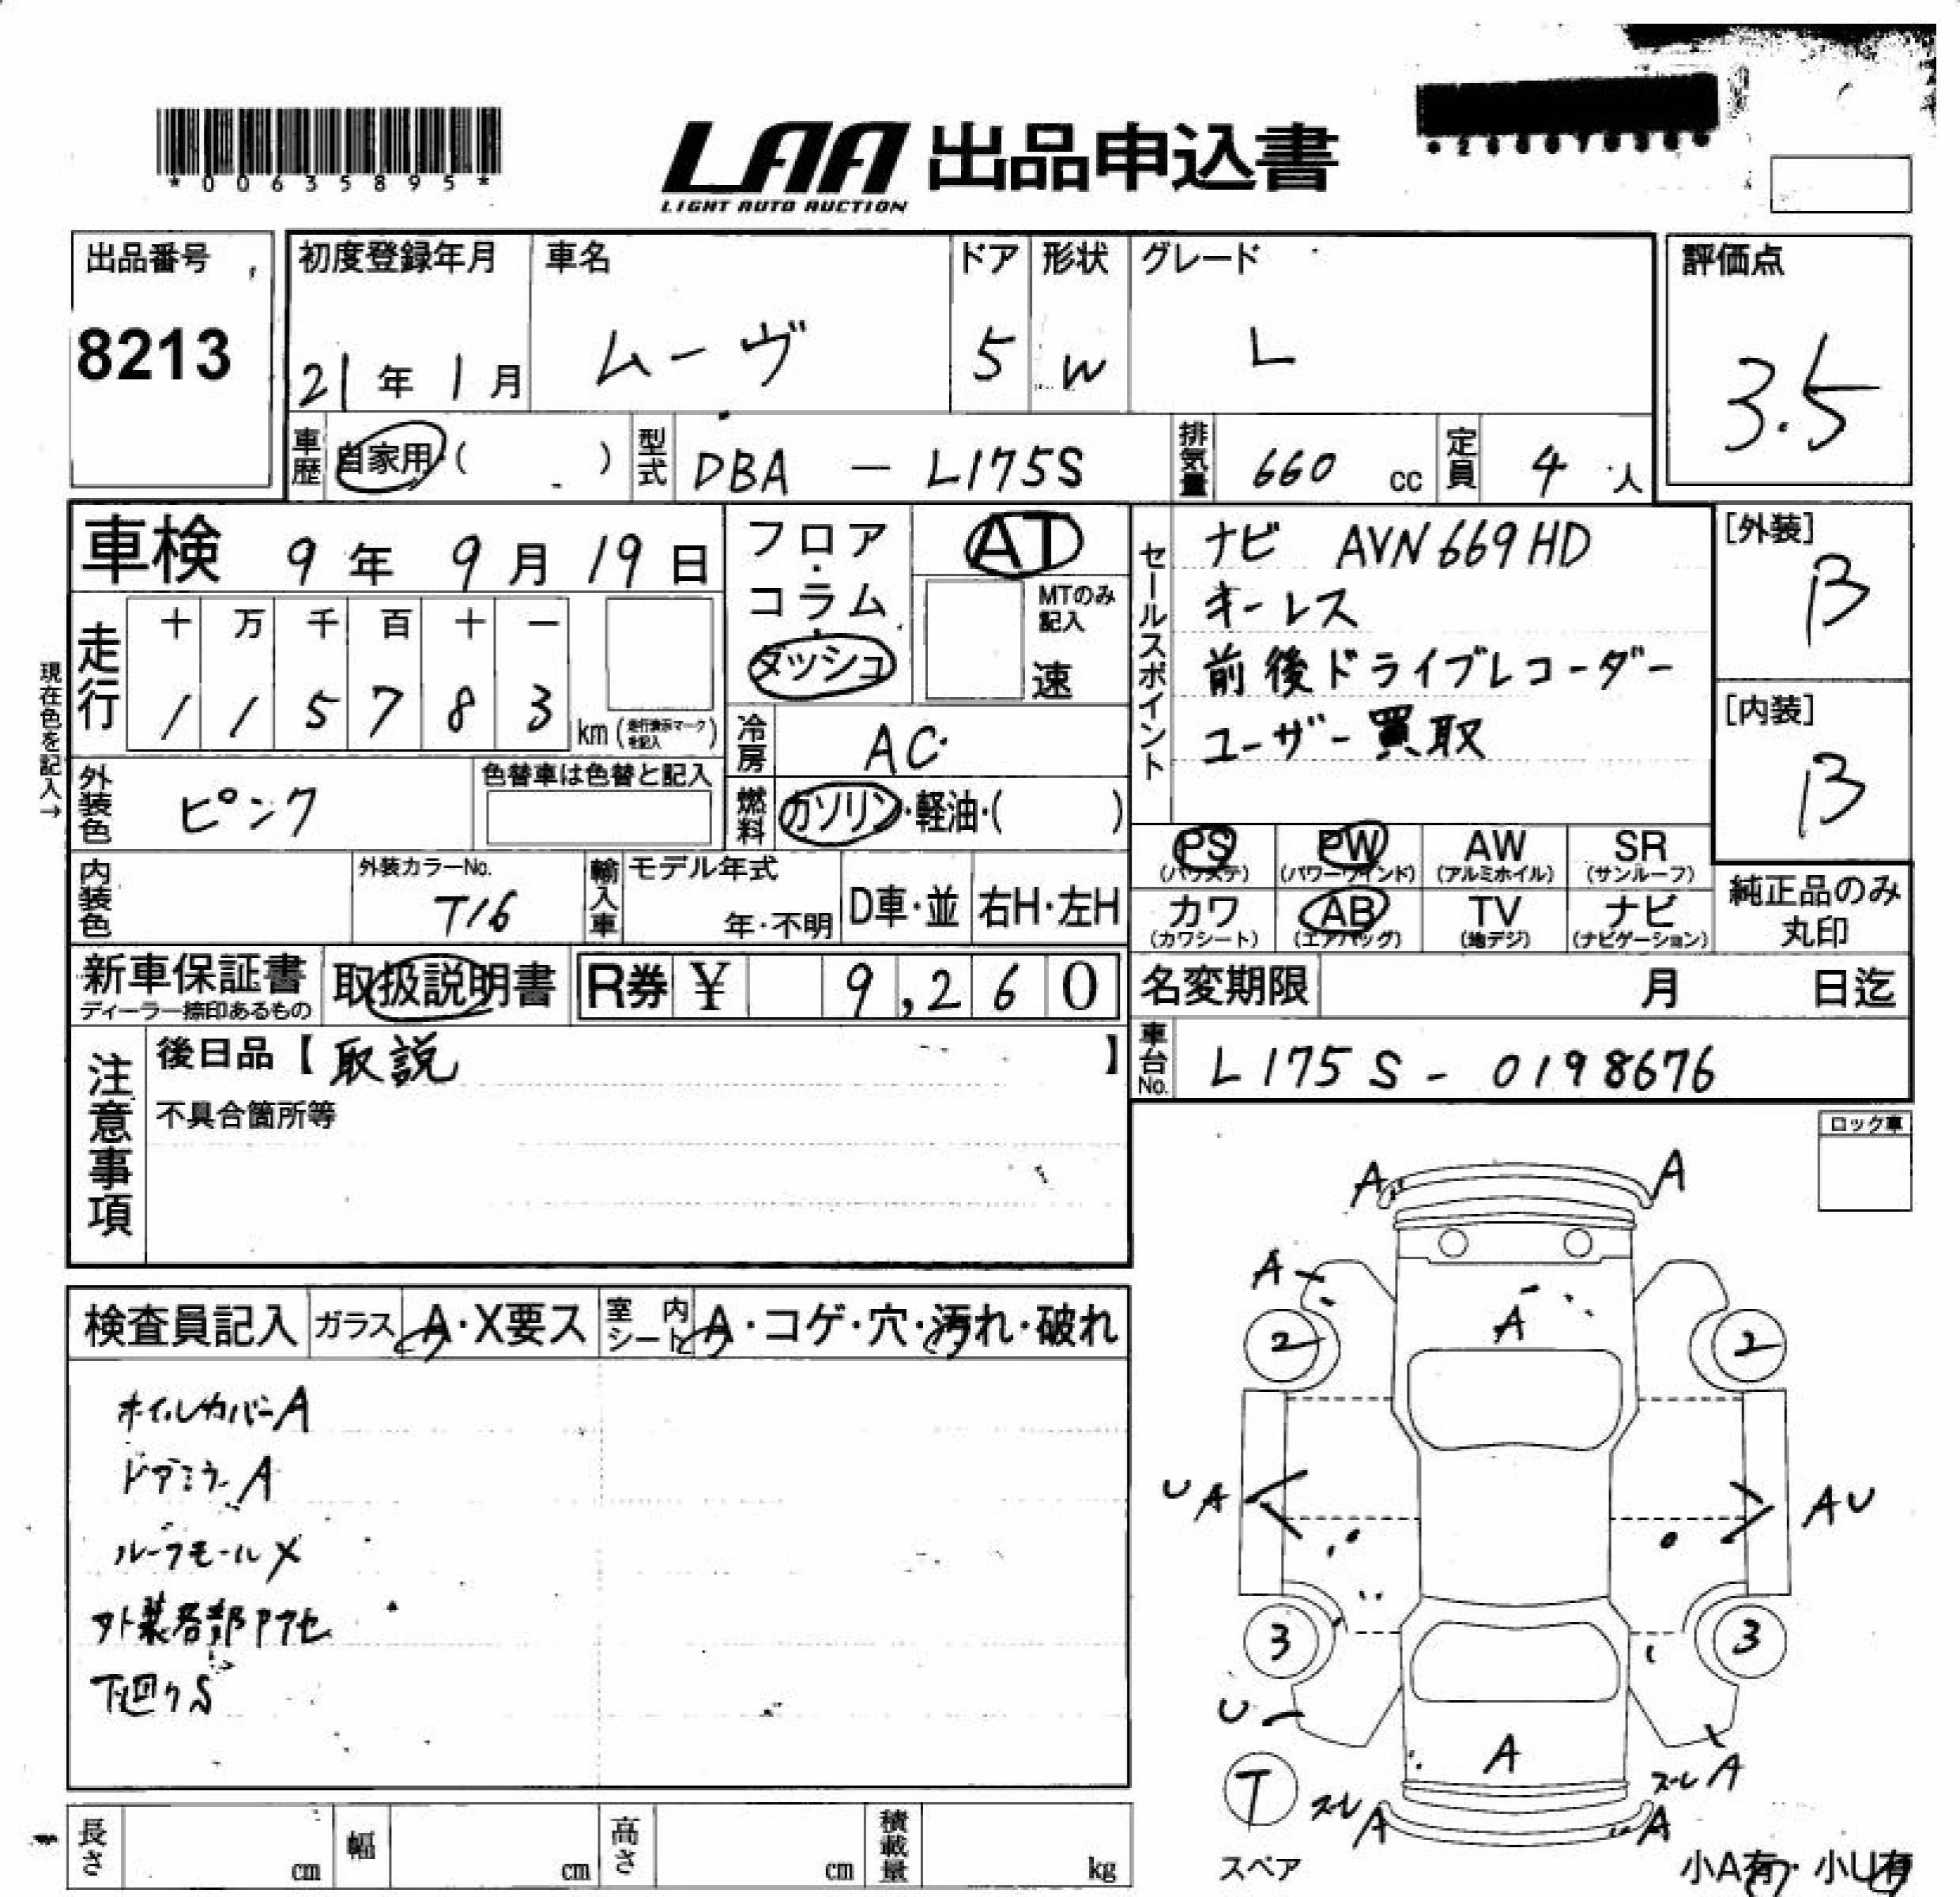 *00635895*
LAA 出品申込書
LIGHT AUTO AUCTION
出品番号
8213
初度登録年月
21年 1月
車名
ムーヴ
ドア
5
形状
W
グレード
L
評価点
3.5
車歴 自家用 ( )
型式 DBA - L175S
排気量 660 cc
定員 4 人
車検 9年 9月 19日
フロア・コラム・ダッシュ
AT
MTのみ記入
速
セールスポイント
ナビ AVN669HD
キーレス
前後ドライブレコーダー
ユーザー買取
[外装]
B
[内装]
B
現在色を記入→
走行
十 万 千 百 十 一
1 1 5 7 8 3 km (走行表示マークを記入)
冷房 AC
外装色 ピンク
色替車は色替と記入
燃料 ガソリン・軽油・( )
PS (パワステ)
PW (パワーウインド)
AW (アルミホイル)
SR (サンルーフ)
カワ (カワシート)
AB (エアバッグ)
TV (地デジ)
ナビ (ナビゲーション)
純正品のみ丸印
内装色
外装カラーNo.
T16
輸入車
モデル年式
年・不明
D車・並
右H・左H
新車保証書
ディーラー捺印あるもの
取扱説明書
R券 ¥ 9,260
名変期限 月 日迄
車台No. L175S - 0198676
注意事項
後日品【取説】
不具合箇所等
ロック車
検査員記入
ガラス A・X要ス
室内シート A・コゲ・穴・汚れ・破れ
ホイルカバーA
ドアミラーA
ルーフモールX
外装各部アセ
下回りS
A A
A
A
2 2
U A
A U
3 3
U
A
T
スレ A
スレ A
A
スペア
小A有・小U有
長さ cm
幅 cm
高さ cm
積載量 kg